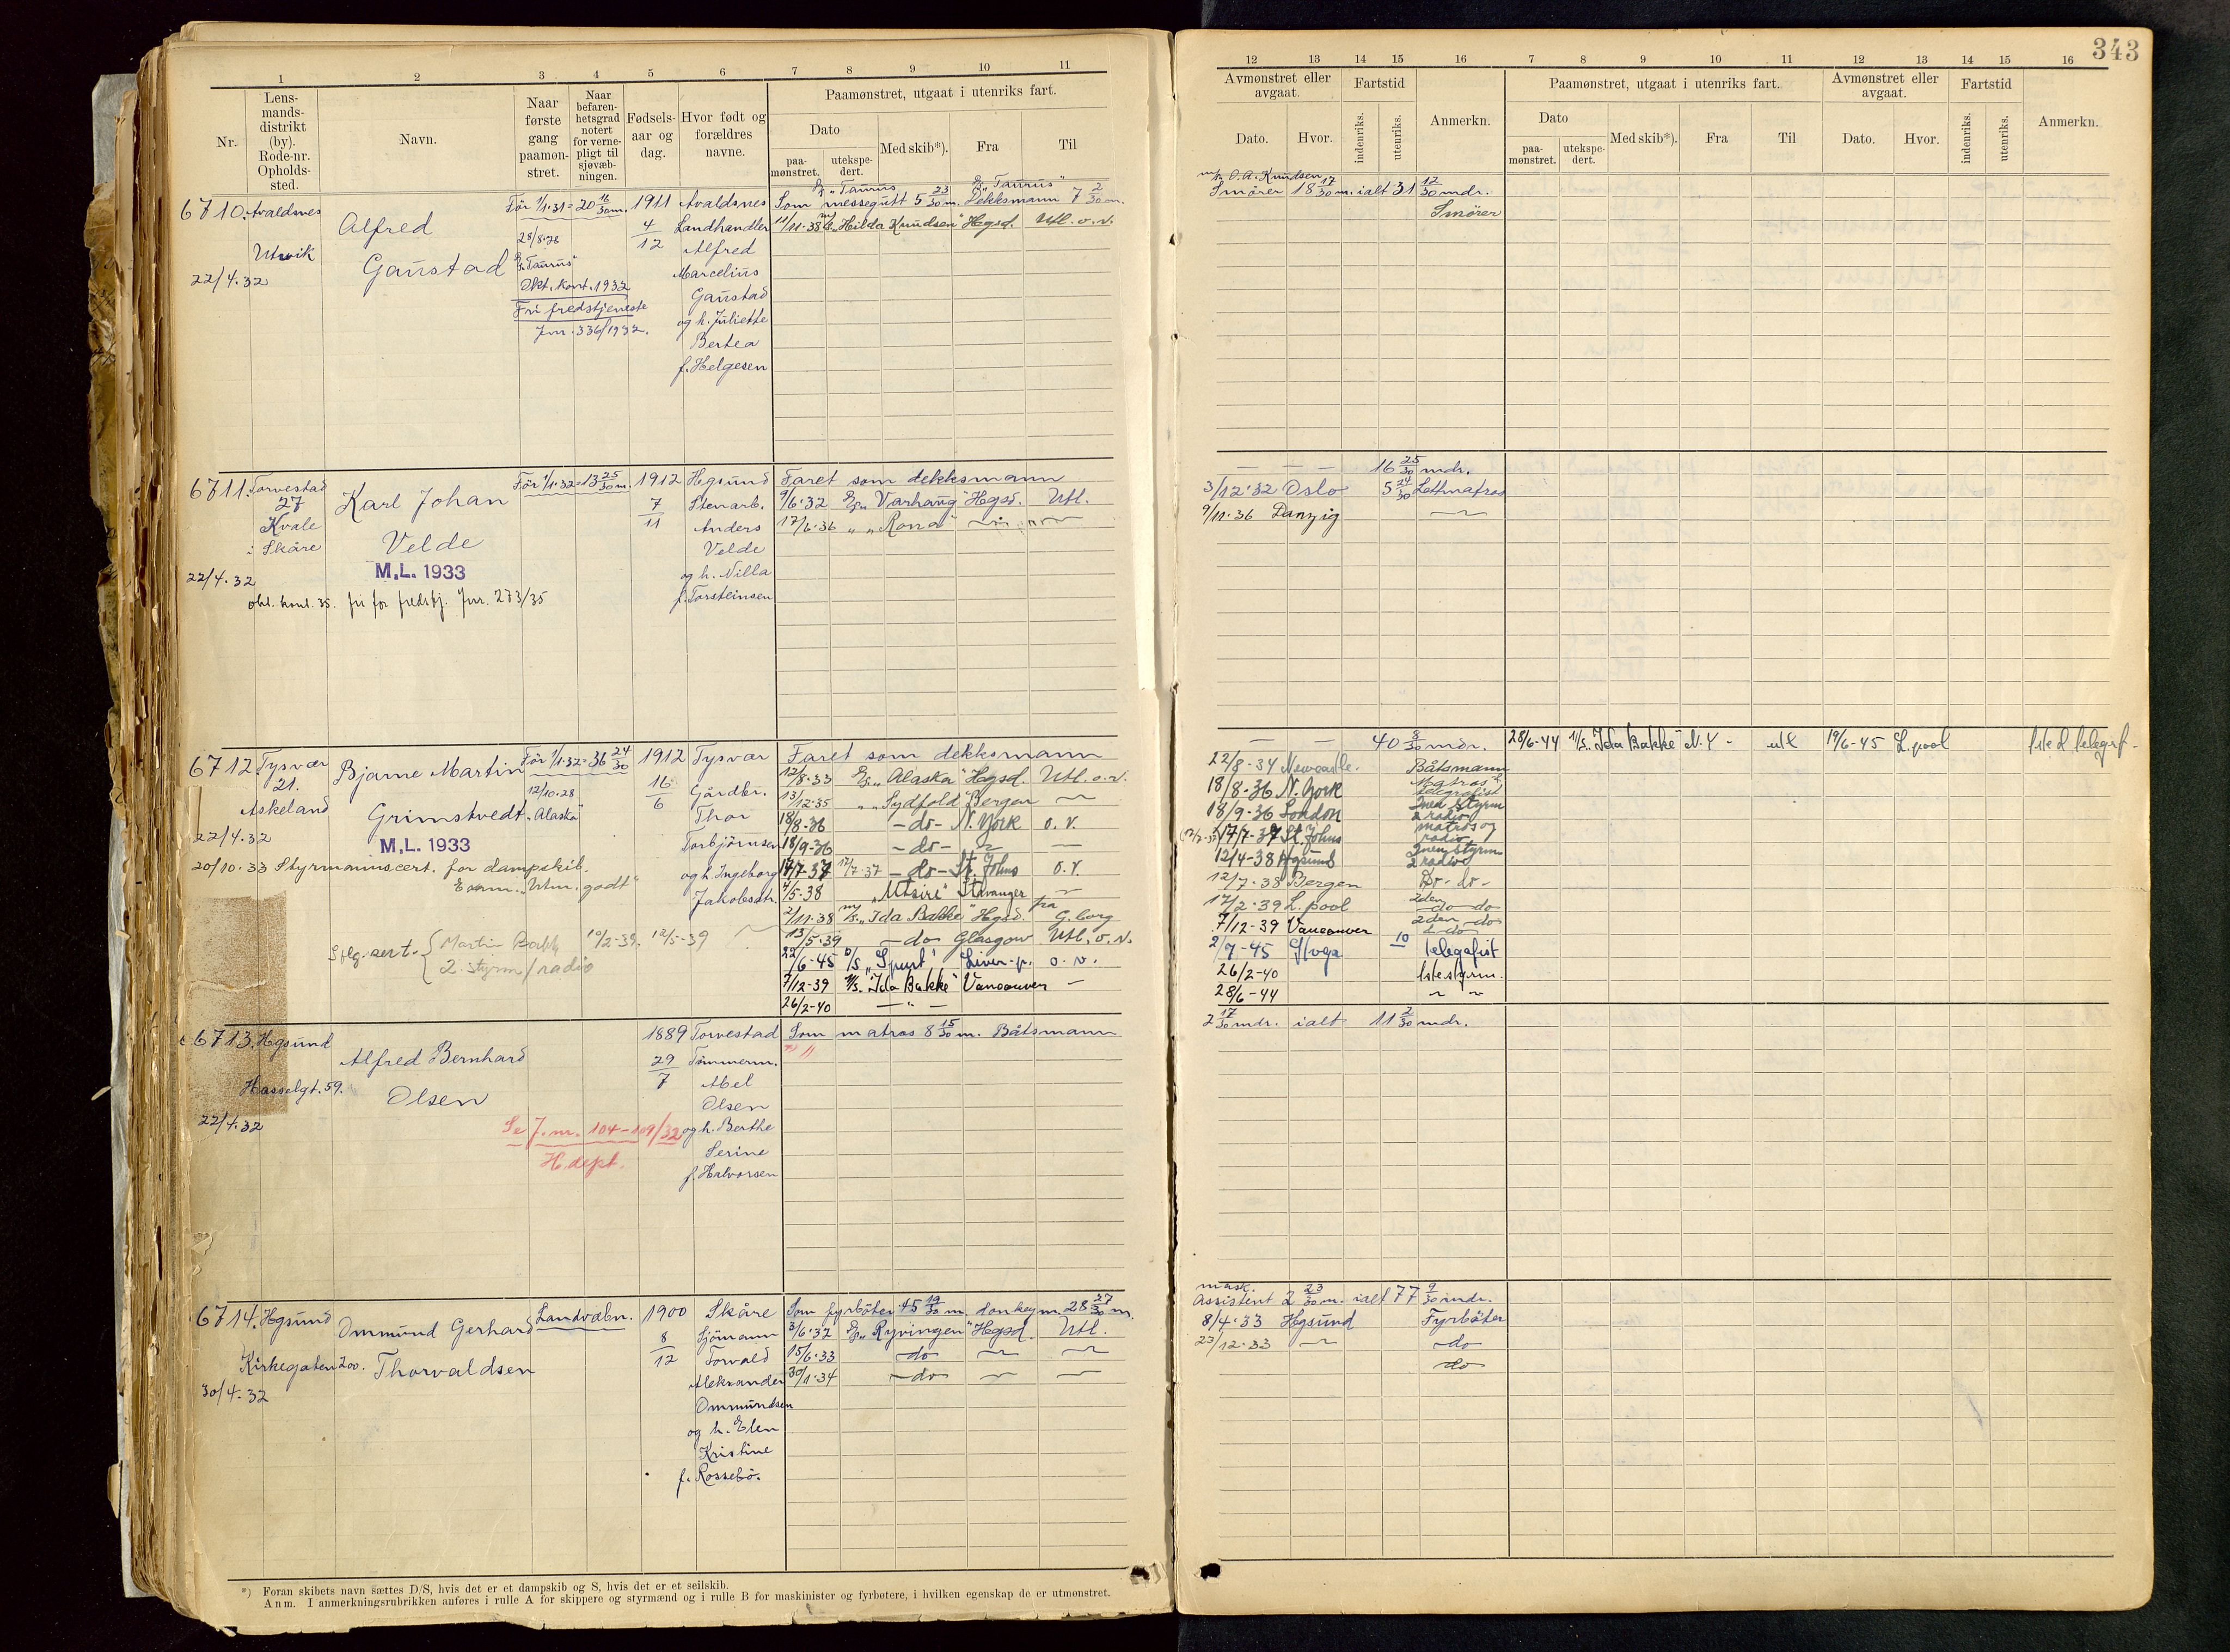 343
1 2 3 4 5 6 7 8 9 10 11
12 13 14 15 16 7 8 9 10 11 12 13 14 15 16
Nr.
Lens-
mands-
distrikt
(by).
Rode-nr.
Opholds-
sted.
Navn.
Naar
første
gang
paamøn-
stret.
Naar
befaren-
hetsgrad
notert
for verne-
pligt til
sjøvæb-
ningen.
Fødsels-
aar og
dag.
Hvor født og
forældres
navne.
Paamønstret, utgaat i utenriks fart.
Dato
paa-
mønstret.
utekspe-
dert.
Med skib*).
Fra
Til
Avmønstret eller
avgaat.
Dato.
Hvor.
Fartstid
indenriks.
utenriks.
Anmerkn.
Paamønstret, utgaat i utenriks fart.
Dato
paa-
mønstret.
utekspe-
dert.
Med skib*).
Fra
Til
Avmønstret eller
avgaat.
Dato.
Hvor.
Fartstid
indenriks.
utenriks.
Anmerkn.
6710. Avaldsnes
Utvik
22/4.32
Alfred
Gaustad
Før 1/1.31 = 20 16/30 m.
28/8.26
"Taurus"
Okt. kont. 1932
Fri fredstjeneste
Jnr. 336/1932.
1911
4/12
Avaldsnes
Landhandler
Alfred
Marcelius
Gaustad
og h. Juliette
Bertea
f. Helgesen
"Taurus" "Taurus"
Som messegutt 5 23/30 m. Dekksmann 7 2/30 m.
11/11.38 "Hilda Knudsen" Hgsd. Utl. o. v.
O. A. Knudsen
Smører 18 17/30 m. ialt 31 12/30 mdr.
Smører
6711. Torvestad
27
Kvale
i Skåre
22/4.32
Karl Johan
Velde
M.L. 1933
okt. kont. 35. fri for fredstj. Jnr. 273/35
Før 1/1.32 = 13 25/30 m.
1912
7/11
Hgsund
Stenarb.
Anders
Velde
og h. Nilla
f. Torsteinsen
Faret som dekksmann
9/6.32 "Varhaug" Hgsd. Utl.
17/6.36 " "Rona"
— — — 16 25/30 mdr.
3/12.32 Oslo 5 24/30 Lettmatros
9/11.36 Danzig
6712. Tysvær
21.
Askeland
22/4.32
Bjarne Martin
Grimstvedt
M.L. 1933
20/10.33 Styrmannscert. for dampskib.
Exam. "Utm. godt"
Martin Bakk 10/2-39. 12/5-39
2. styrm/radio
Før 1/1.32 = 36 24/30
12/10.28
"Alaska"
1912
16/6
Tysvær
Gårdbr.
Thor
Torbjørnsen
og h. Ingeborg
Jakobsdtr.
Faret som dekksmann
12/8.33 "Alaska" Hgsd. Utl. o.v.
13/12.35 " "Sydfold" Bergen
18/8-36 —do— N. York o. v.
18/9-36 —do— —
17/7-37 17/7-37 —do— St. Johns o. v.
4/5-38 "Utsire" Stavanger
2/11.38 "Ida Bakke" Hgsd. fra G.borg
13/5.39 —do— Glasgow Utl. o. v.
22/6-45 D/S "Spurt" Liver-p. o. v.
7/12-39 M/S. "Ida Bakke" Vancouver —
26/2-40 — " —
— — 40 8/30 mdr.
22/8-34 Newcastle. Båtsmann
18/8-36 N. York Matros & telegrafist
18/9-36 London 2nen styrm & radio
17/7-37 St. Johns matros og radio
12/4-38 Hgsund 2nen styrm & radio
12/7.38 Bergen Do - do -
17/2.39 L. pool 2den do do
7/12-39 Vancouver 2den do & do
2/7-45 10 telegrafist
26/2-40 1ste styrm.
28/6-44
28/6-44 M/S. "Ida Bakke" N. Y - utl 19/6-45 L. pool
6713. Hgsund
Hasselgt. 59.
22/4.32
Alfred Bernhard
Olsen
Se J. nr. 104-109/32
H. dept.
1889
29/7
Torvestad
Tømmerm.
Abel
Olsen
og h. Berthe
Serine
f. Halvorsen
Som matros 8 15/30 m. Båtsmann
2 17/30 mdr. ialt 11 2/30 mdr.
6714. Hgsund
Kirkegaten 200.
30/4.32
Ommund Gerhard
Thorvaldsen
Landvæbn.
1900
8/12
Skåre
Sjömann
Torvald
Aleksander
Ommundsen
og h. Elen
Kristine
f. Rossebø.
Som fyrbøter 45 19/30 m. donkeym. 28 27/30 m.
3/6.32 "Ryvingen" Hgsd. Utl.
15/6.33 —do—
30/1.34 —do—
mask.
Assistent 2 23/30 m. ialt 77 9/30 mdr.
8/4.33 Hgsund Fyrbøter
23/12.33 do
do
*) Foran skibets navn sættes D/S, hvis det er et dampskib og S, hvis det er et seilskib.
Anm. I anmerkningsrubrikken anføres i rulle A for skippere og styrmænd og i rulle B for maskinister og fyrbøtere, i hvilken egenskap de er utmønstret.